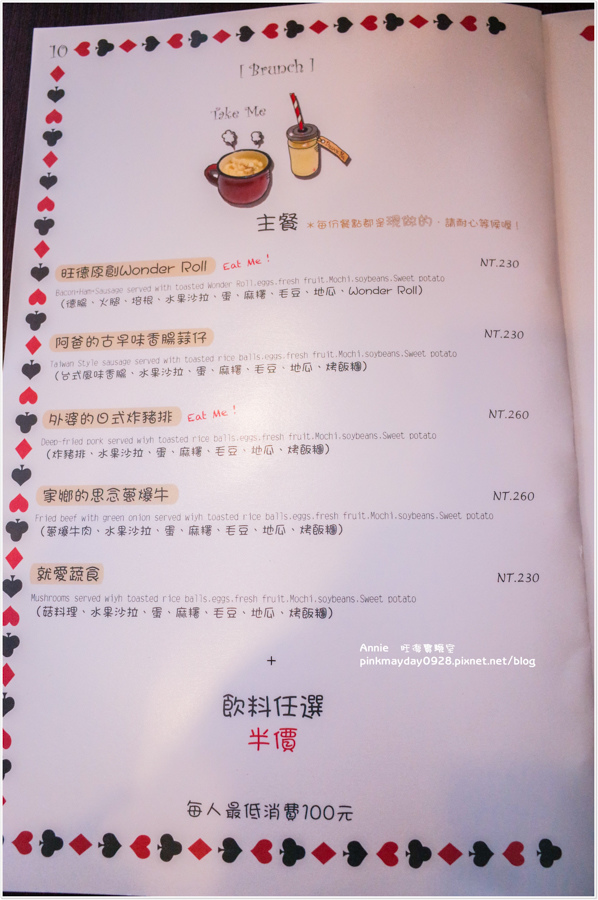 10
[ Brunch ]
Take Me
主餐 *每份餐點都是現做的，請耐心等候喔！
旺德原創Wonder Roll Eat Me! NT.230
Bacon+Ham+Sausage served with toasted Wonder Roll.eggs.fresh fruit.Mochi.soybeans.Sweet potato
(德腸、火腿、培根、水果沙拉、蛋、麻糬、毛豆、地瓜、Wonder Roll)
阿爸的古早味香腸蒜仔 NT.230
Taiwan Style sausage served with toasted rice balls.eggs.fresh fruit.Mochi.soybeans.Sweet potato
(台式風味香腸、水果沙拉、蛋、麻糬、毛豆、地瓜、烤飯糰)
外婆的日式炸豬排 Eat Me! NT.260
Deep-fried pork served wiyh toasted rice balls.eggs.fresh fruit.Mochi.soybeans.Sweet potato
(炸豬排、水果沙拉、蛋、麻糬、毛豆、地瓜、烤飯糰)
家鄉的思念蔥爆牛 NT.260
Fried beef with green onion served wiyh toasted rice balls.eggs.fresh fruit.Mochi.soybeans.Sweet potato
(蔥爆牛肉、水果沙拉、蛋、麻糬、毛豆、地瓜、烤飯糰)
就愛蔬食 NT.230
Mushrooms served wiyh toasted rice balls.eggs.fresh fruit.Mochi.soybeans.Sweet potato
(菇料理、水果沙拉、蛋、麻糬、毛豆、地瓜、烤飯糰)
Annie
pinkmayday0928.pixnet.net/blog
+
飲料任選
半價
每人最低消費100元